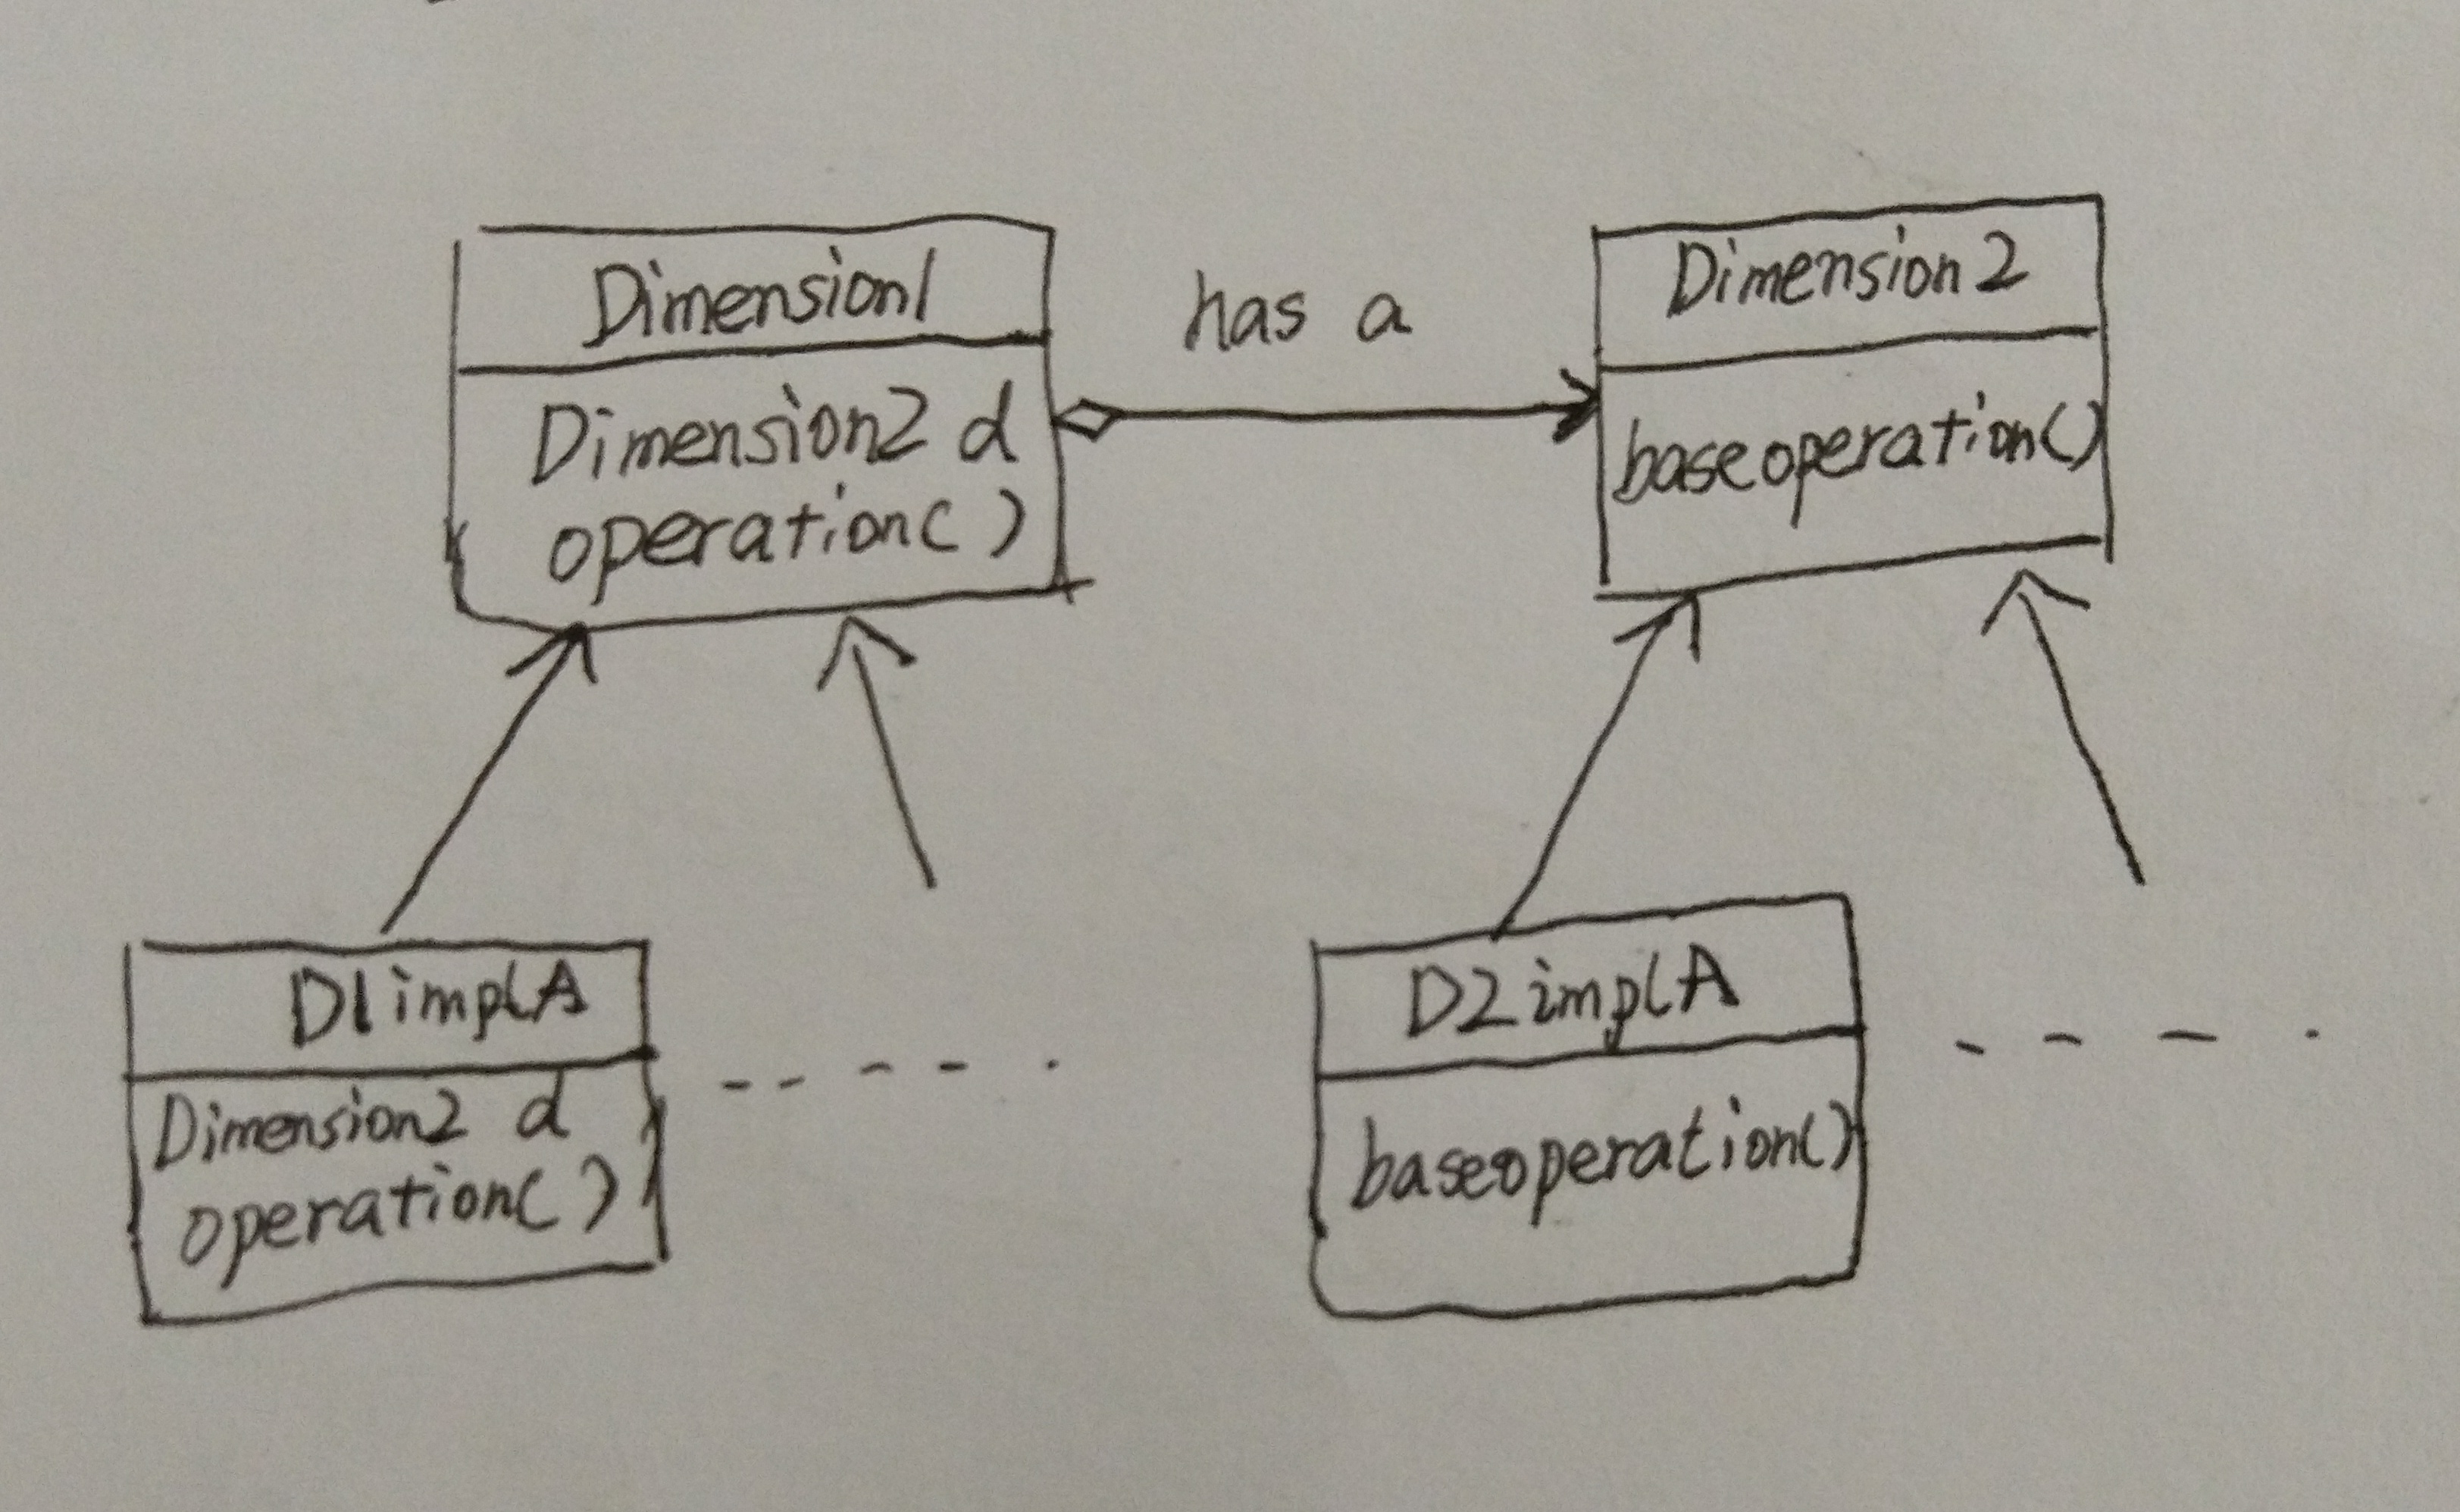 Dimension1
Dimension2 d
operation()
has a
Dimension2
baseoperation()
D1implA
Dimension2 d
operation()
D2implA
baseoperation()